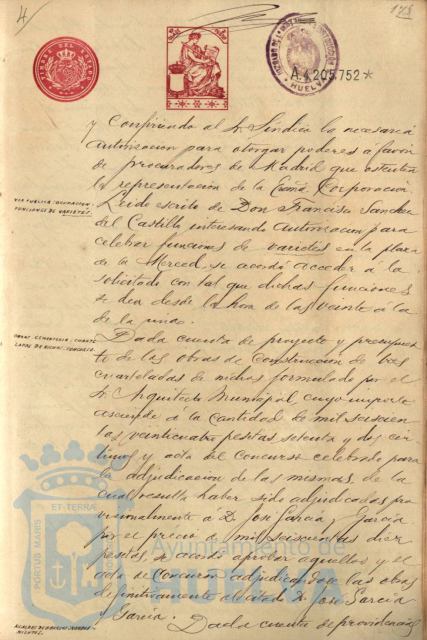 4
178
TIMBRE DEL ESTADO
HUELVA
A.4.205,752*
y confiriendo al Sr. Síndico la necesaria
autorización para otorgar poderes a favor
de procuradores de Madrid que ostenten
la representación de la Excma Corporación.
VIA PUBLICA OCUPACION:
FUNCIONES DE VARIETES.
Leído escrito de Don Francisco Sanchez
del Castillo interesando autorizacion para
celebrar funciones de varietes en la plaza
de la Merced, se acordó acceder á lo
solicitado con tal que dichas funciones
se den desde la hora de las veinte á la
de la una.
OBRAS. CEMENTERIO: CUARTE
LADAS DE NICHOS. CONCURSO.
Dada cuenta de proyecto y presupues
to de las obras de construccion de tres
cuarteladas de nichos formulado por el
Sr. Arquitecto Municipal cuyo importe
asciende á la cantidad de mil seiscien
tas veinticuatro pesetas setenta y dos cén
timos y acta del concurso celebrado para
la adjudicacion de las mismas, de la
cual resulta haber sido adjudicadas pro
visionalmente á D. José García y García
por el precio de mil seiscientas diez
pesetas, se acordó aprobar aquellos y el
acta de concurso adjudicandose las obras
definitivamente al citado D. José García
y García.
Dada cuenta de providencias
PORTUS MARIS ET TERRAE
Ayuntamiento de
HUELVA